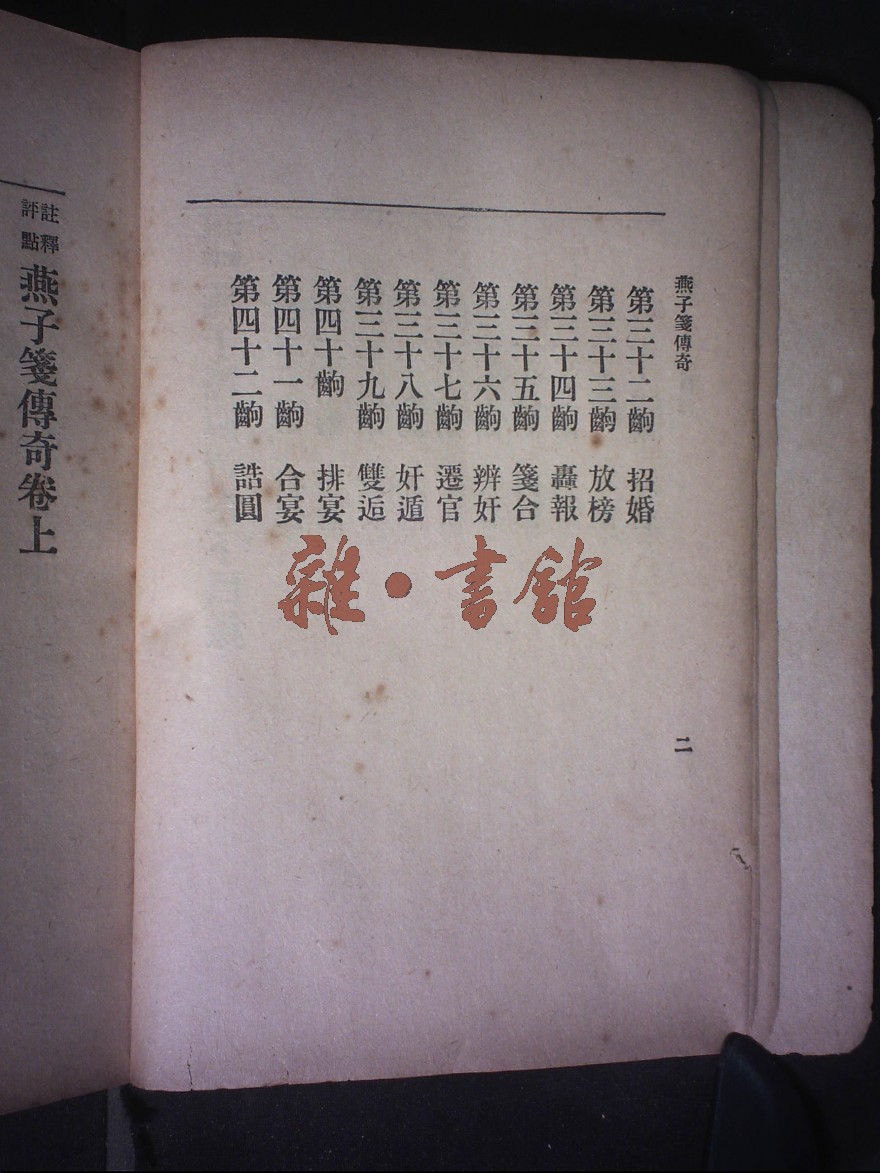 燕子箋傳奇
第三十二齣　招婚
第三十三齣　放榜
第三十四齣　轟報
第三十五齣　箋合
第三十六齣　辨奸
第三十七齣　遷官
第三十八齣　奸遁
第三十九齣　雙逅
第四十齣　排宴
第四十一齣　合宴
第四十二齣　誥圓
二
註釋
評點
燕子箋傳奇卷上
雜·書館